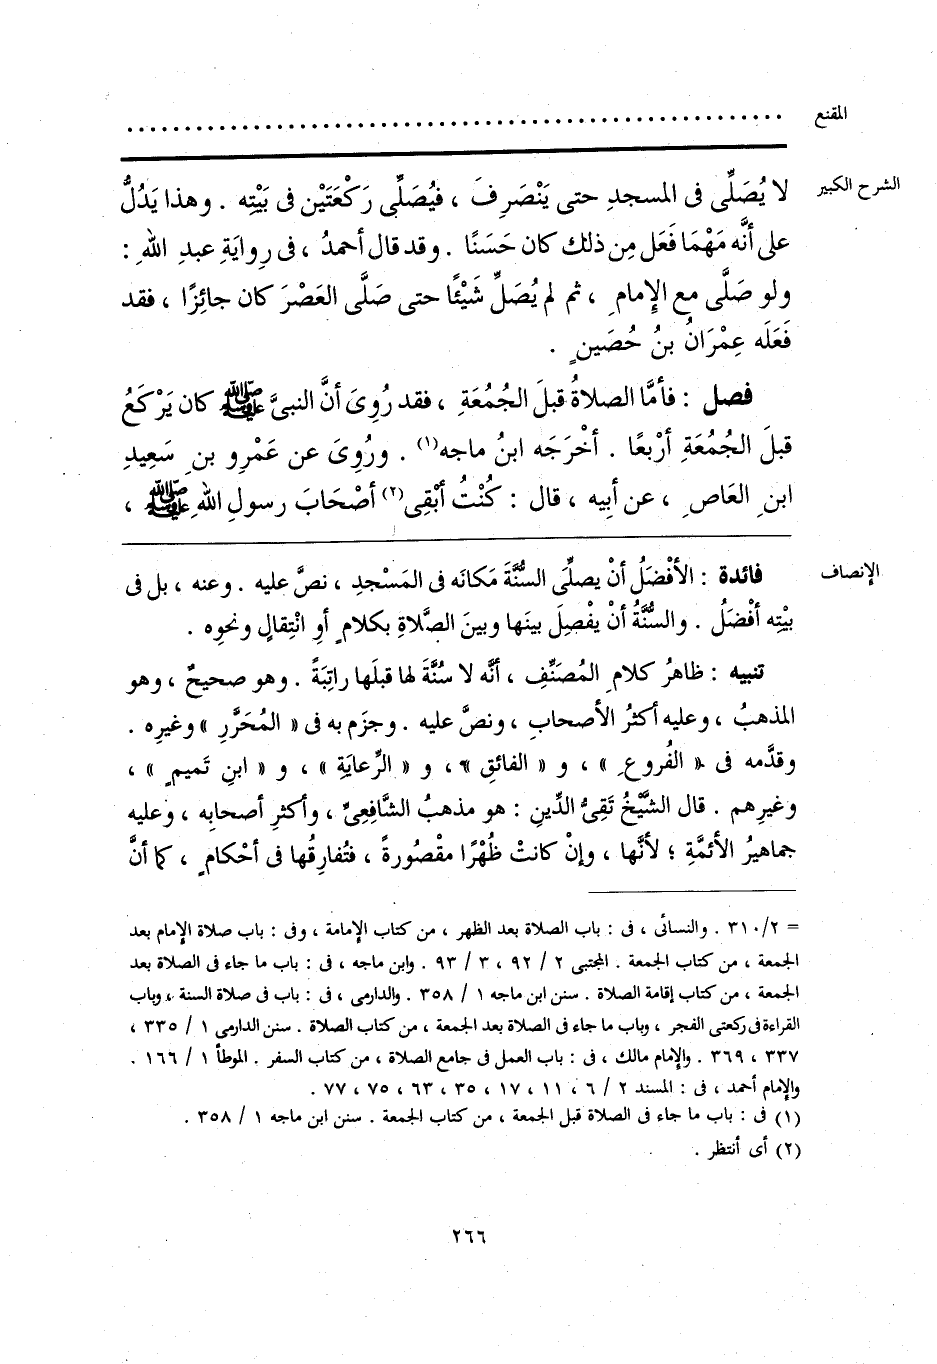 المقنع ........................................................
الشرح الكبير لا يُصَلِّى فى المسجدِ حتى يَنْصَرِفَ ، فيُصَلِّى رَكْعَتَيْن فى بَيْتِه . وهذا يَدُلُّ
على أنَّه مَهْمَا فَعَل مِن ذلك كان حَسَنًا . وقد قال أحمدُ ، فى رِوايَةِ عبدِ اللهِ :
ولو صَلَّى مع الإِمامِ ، ثم لم يُصَلِّ شَيْئًا حتى صَلَّى العَصْرَ كان جائِزًا ، فقد
فَعَلَه عِمْرَانُ بنُ حُصَينٍ .
فصل : فأمَّا الصلاةُ قبلَ الجُمُعَةِ ، فقد رُوِىَ أنَّ النبىَّ ﷺ كان يَرْكَعُ
قبلَ الجُمُعَةِ أرْبعًا . أخْرَجَه ابنُ ماجه(١) . ورُوِىَ عن عَمْرِو بنِ سَعِيدِ
ابنِ العَاصِ ، عن أبِيه ، قال : كُنْتُ أبْقِى(٢) أصْحَابَ رسولِ اللهِ ﷺ ،
الإنصاف فائدة : الأفْضَلُ أنْ يصلِّىَ السُّنَّةَ مَكانَه فى المَسْجدِ ، نصَّ عليه . وعنه ، بل فى
بيْتِه أفْضَلُ . والسُّنَّةُ أنْ يفْصِلَ بينَها وبينَ الصَّلاةِ بكلامٍ أوِ انْتِقالٍ ونحوِه .
تنبيه : ظاهرُ كلامِ المُصَنِّفِ ، أنَّه لا سُنَّةَ لها قبلَها راتِبَةً . وهو صحيحٌ ، وهو
المذهبُ ، وعليه أكثرُ الأصحابِ ، ونصَّ عليه . وجزَم به فى « المُحَرَّرِ » وغيرِه .
وقدَّمه فى « الفُروعِ » ، و « الفائقِ » ، و « الرِّعايَةِ » ، و « ابنِ تَميمٍ » ،
وغيرِهم . قال الشَّيْخُ تَقِىُّ الدِّينِ : هو مذهبُ الشَّافِعِىِّ ، وأكثرِ أصحابِه ، وعليه
جماهيرُ الأئمَّةِ ؛ لأنَّها ، وإنْ كانتْ ظُهْرًا مقْصُورةً ، فتُفارِقُها فى أحْكامٍ ، كما أنَّ
= ٢/ ٣١٠ . والنسائى ، فى : باب الصلاة بعد الظهر ، من كتاب الإمامة ، وفى : باب صلاة الإمام بعد
الجمعة ، من كتاب الجمعة . المجتبى ٢ / ٩٢ ، ٣ / ٩٣ . وابن ماجه ، فى : باب ما جاء فى الصلاة بعد
الجمعة ، من كتاب إقامة الصلاة . سنن ابن ماجه ١ / ٣٥٨ . والدارمى ، فى : باب فى صلاة السنة ، وباب
القراءة فى ركعتى الفجر ، وباب ما جاء فى الصلاة بعد الجمعة ، من كتاب الصلاة . سنن الدارمى ١ / ٣٣٥ ،
٣٣٧ ، ٣٦٩ . والإمام مالك ، فى : باب العمل فى جامع الصلاة ، من كتاب السفر . الموطأ ١ / ١٦٦ .
والإمام أحمد ، فى : المسند ٢ / ٦ ، ١١ ، ١٧ ، ٣٥ ، ٦٣ ، ٧٥ ، ٧٧ .
(١) فى : باب ما جاء فى الصلاة قبل الجمعة ، من كتاب الجمعة . سنن ابن ماجه ١ / ٣٥٨ .
(٢) أى أنتظر .
٢٦٦